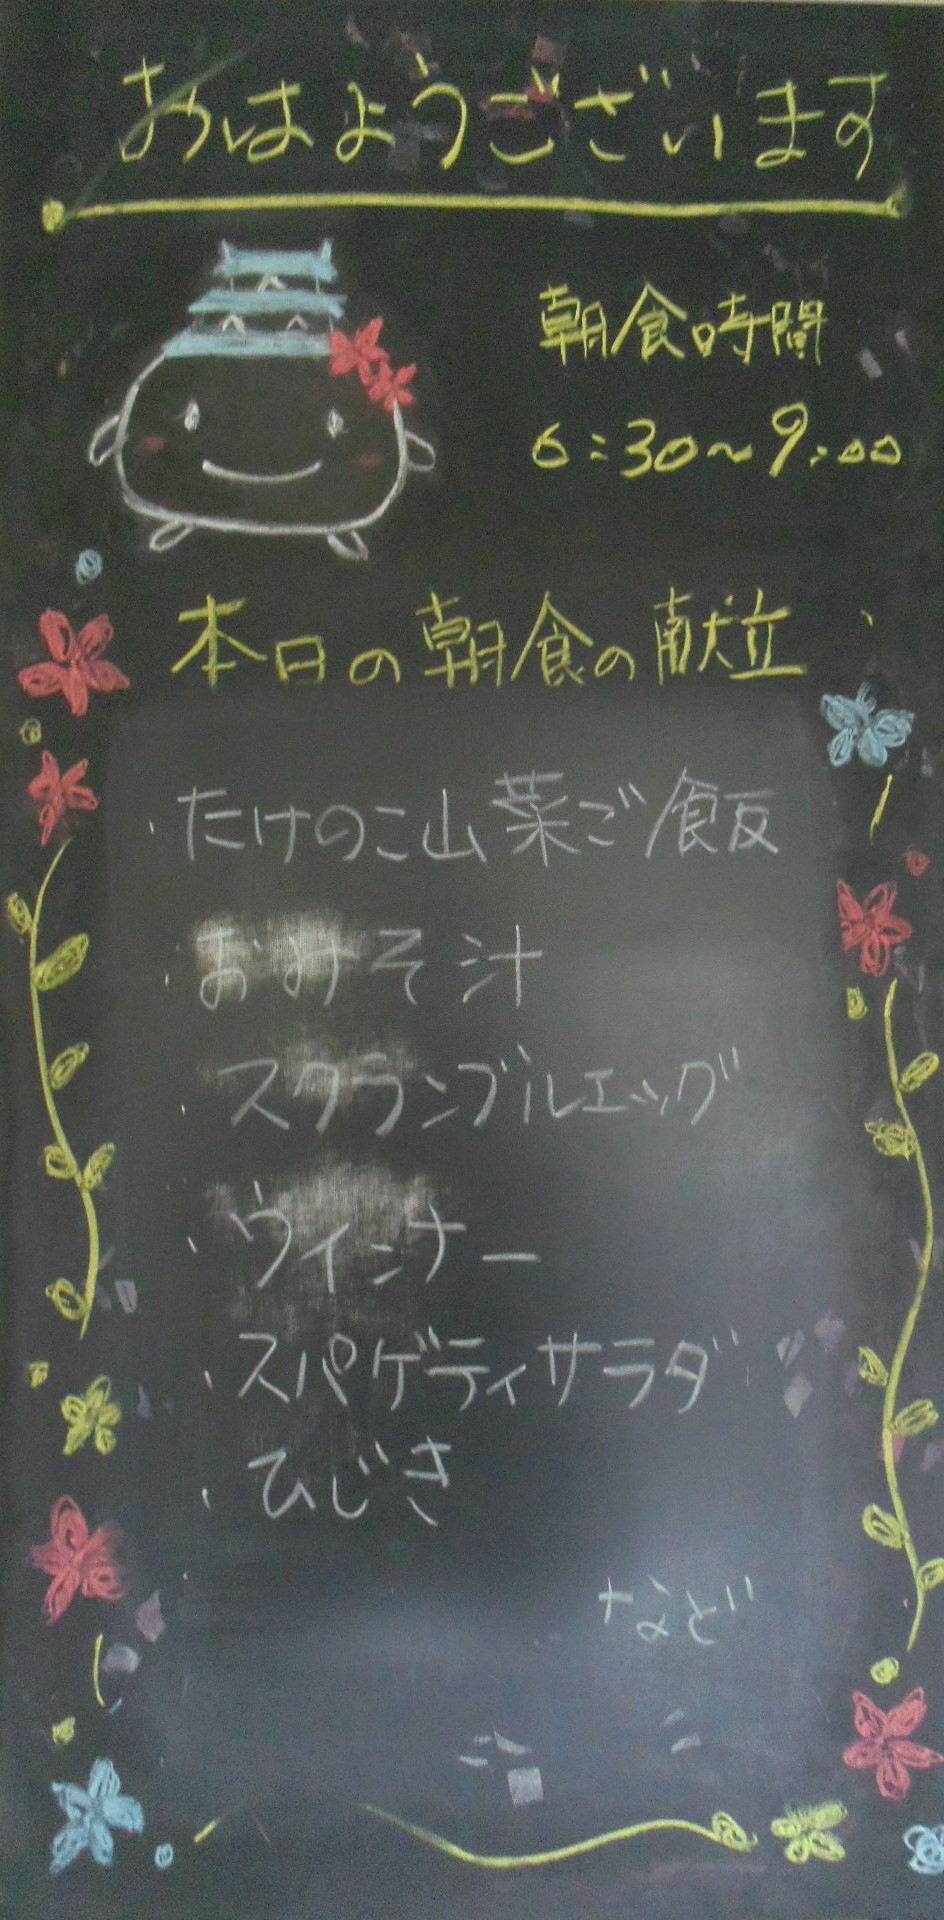 おはようございます
朝食時間
6:30～9:00
本日の朝食の献立
・たけのこ山菜ご飯
・おみそ汁
・スクランブルエッグ
・ウィンナー
・スパゲティサラダ
・ひじき
など